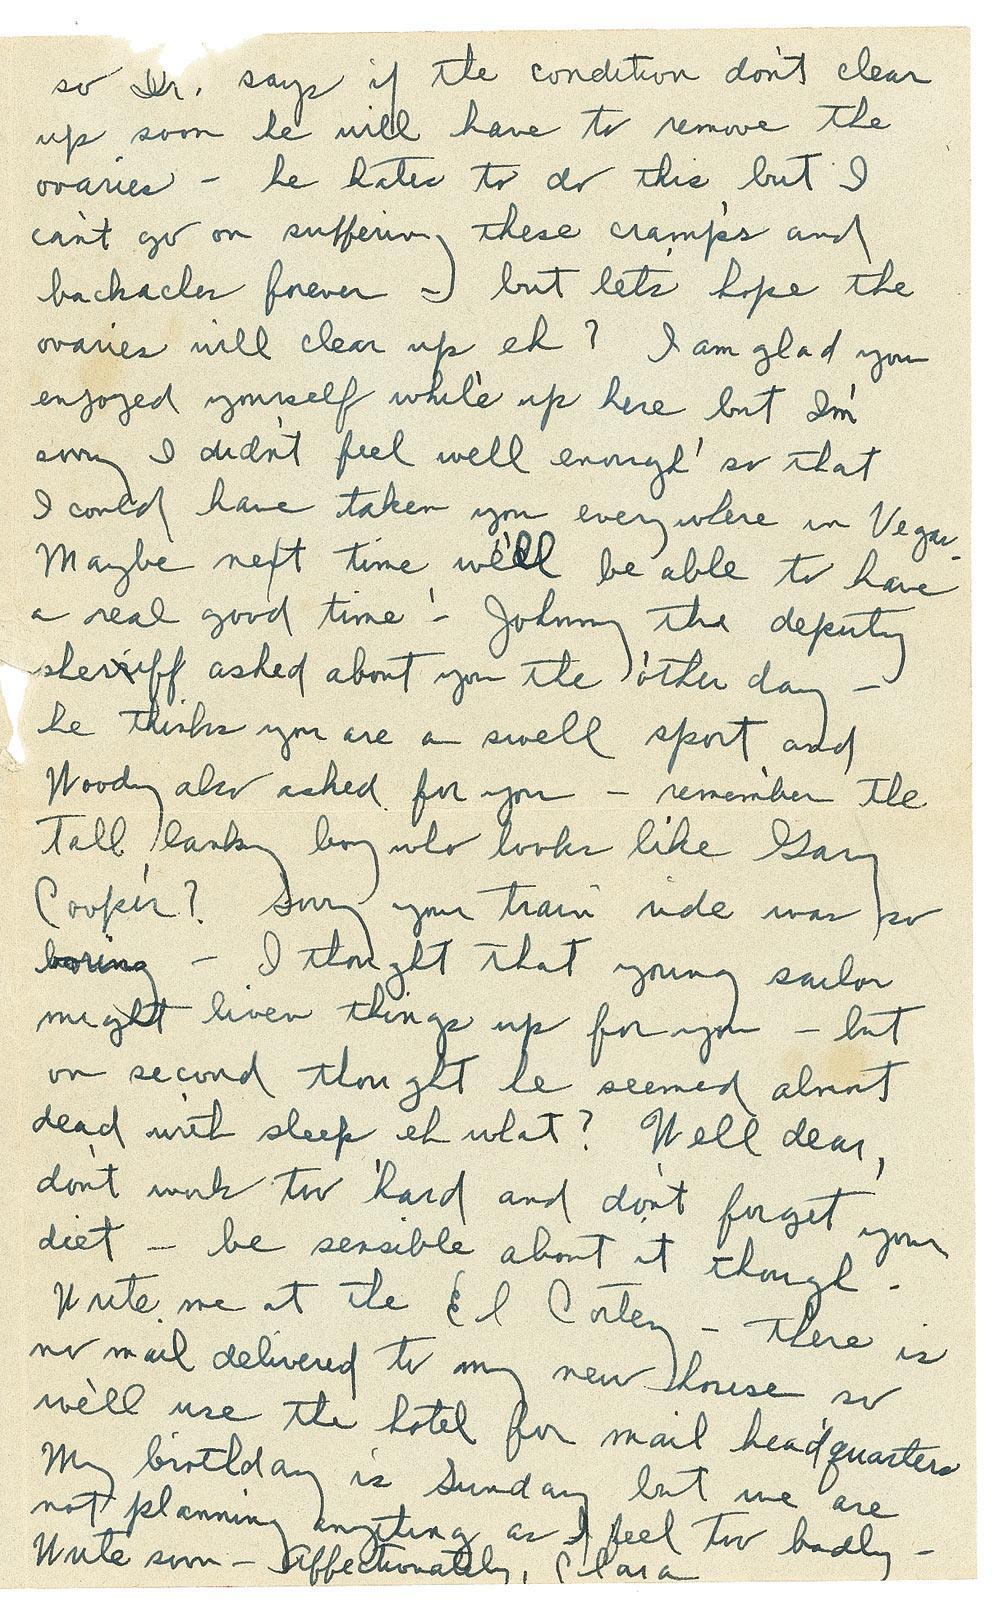 so Dr. says if the condition don't clear
up soon he will have to remove the
ovaries - he hates to do this but I
can't go on suffering these cramps and
backaches forever - but let's hope the
ovaries will clear up eh? I am glad you
enjoyed yourself while up here but I'm
sorry I didn't feel well enough so that
I could have taken you everywhere in Vegas.
Maybe next time we'll be able to have
a real good time - Johnny the deputy
sheriff asked about you the other day -
he thinks you are a swell sport and
Woody also asked for you - remember the
tall lanky boy who looks like Gary
Cooper? Sorry your train ride was so
boring - I thought that young sailor
might liven things up for you - but
on second thought he seemed almost
dead with sleep eh what? Well dear,
don't work too hard and don't forget your
diet - be sensible about it though -
Write me at the El Cortez - there is
no mail delivered to my new house so
we'll use the hotel for mail headquarters
My birthday is Sunday but we are
not planning anything as I feel too badly -
Write soon - Affectionately, Clara